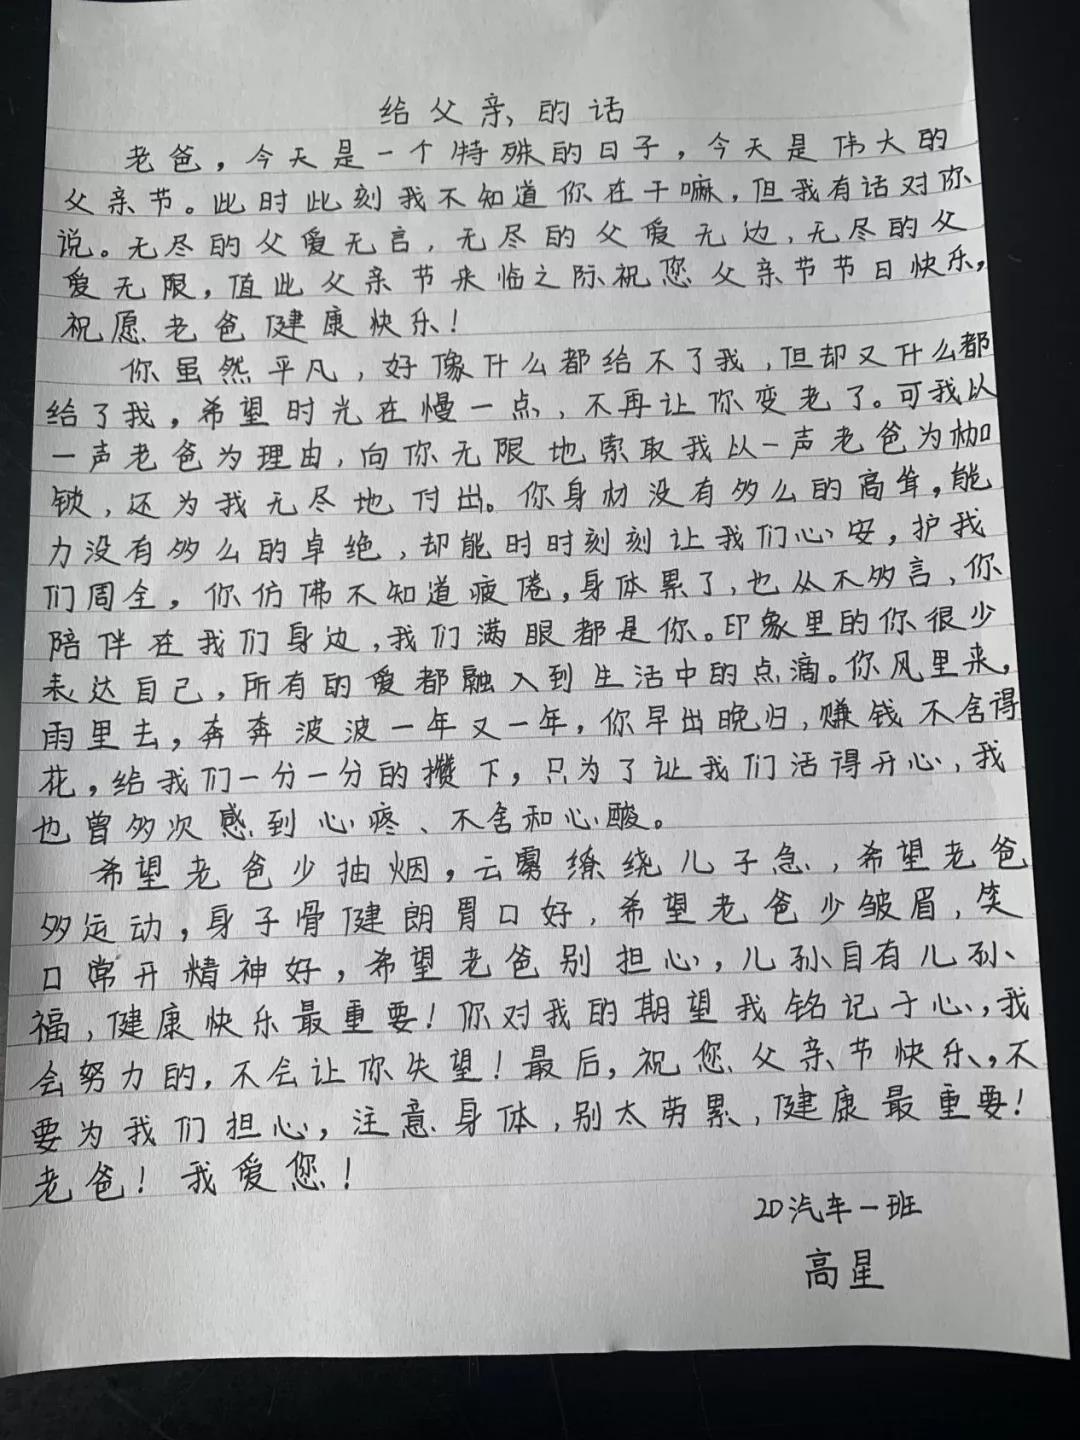 给父亲的话
老爸，今天是一个特殊的日子，今天是伟大的
父亲节。此时此刻我不知道你在干嘛，但我有话对你
说。无尽的父爱无言，无尽的父爱无边，无尽的父
爱无限，值此父亲节来临之际祝您父亲节节日快乐，
祝愿老爸健康快乐！
你虽然平凡，好像什么都给不了我，但却又什么都
给了我，希望时光在慢一点，不再让你变老了。可我以
一声老爸为理由，向你无限地索取我以一声老爸为枷
锁，还为我无尽地付出。你身材没有多么的高耸，能
力没有多么的卓绝，却能时时刻刻让我们心安，护我
们周全，你仿佛不知道疲倦，身体累了，也从不多言，你
陪伴在我们身边，我们满眼都是你。印象里的你很少
表达自己，所有的爱都融入到生活中的点滴。你风里来，
雨里去，奔奔波波一年又一年，你早出晚归，赚钱不舍得
花，给我们一分一分的攒下，只为了让我们活得开心，我
也曾多次感到心疼、不舍和心酸。
希望老爸少抽烟，云雾缭绕儿子急，希望老爸
多运动，身子骨健朗胃口好，希望老爸少皱眉，笑
口常开精神好，希望老爸别担心，儿孙自有儿孙、
福，健康快乐最重要！你对我的期望我铭记于心，我
会努力的，不会让你失望！最后，祝您父亲节快乐，不
要为我们担心，注意身体，别太劳累，健康最重要！
老爸！我爱您！
20汽车一班
高星